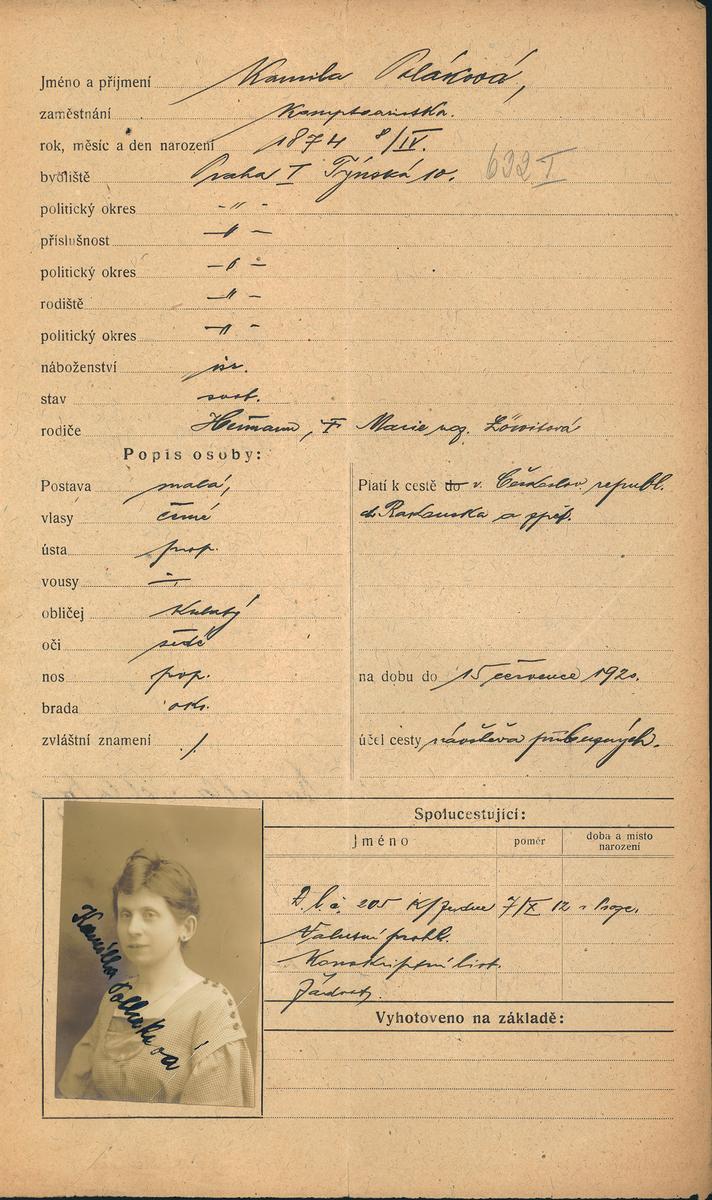 Jméno a příjmení Kamila Poláková,
zaměstnání
rok, měsíc a den narození 1874 8/IV.
bydliště Praha I Týnská 10. 632 I
politický okres - " -
příslušnost - " -
politický okres - " -
rodiště - " -
politický okres - " -
náboženství isr.
stav svob.
rodiče Heřmann, Marie roz. Löwitová
Popis osoby:
Postava malá,
vlasy černé
ústa prop.
vousy
obličej kulatý
oči šedé
nos prop.
brada
zvláštní znamení ./.
Platí k cestě do v. Českoslov. republ.
do Rakouska a zpět.
na dobu do 15 července 1920.
účel cesty návštěva příbuzných.
Kamilla Pollaková
Spolucestující:
Jméno poměr doba a místo narození
205 7/X 12 v Praze.
Konskripční list.
Žádost.
Vyhotoveno na základě: